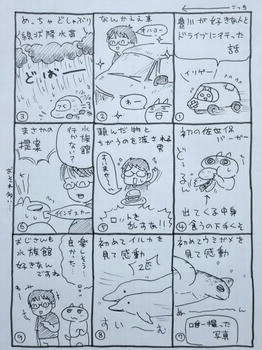 豊川が好きなんと
ドライブにイテッた
話
イソゲー!
①
なんしかええ車
オハヨー
②
めっちゃどしゃぶり
線状降水帯
どば
③
初の佐世保
バーガー
出てくる中身
食うの下手くそ
④
頼んだ物と
ちがうのを渡される
男
ロットを
乱すな!!
⑤
まさかの
提案
水族館
行かない?
⑥
初めてウミガメを
見て感動
唯一撮った
写真
⑦
初めてイルカを
見て感動
2匹
すいえ
⑧
おじさんも
水族館
好きなん
ですね
⑨